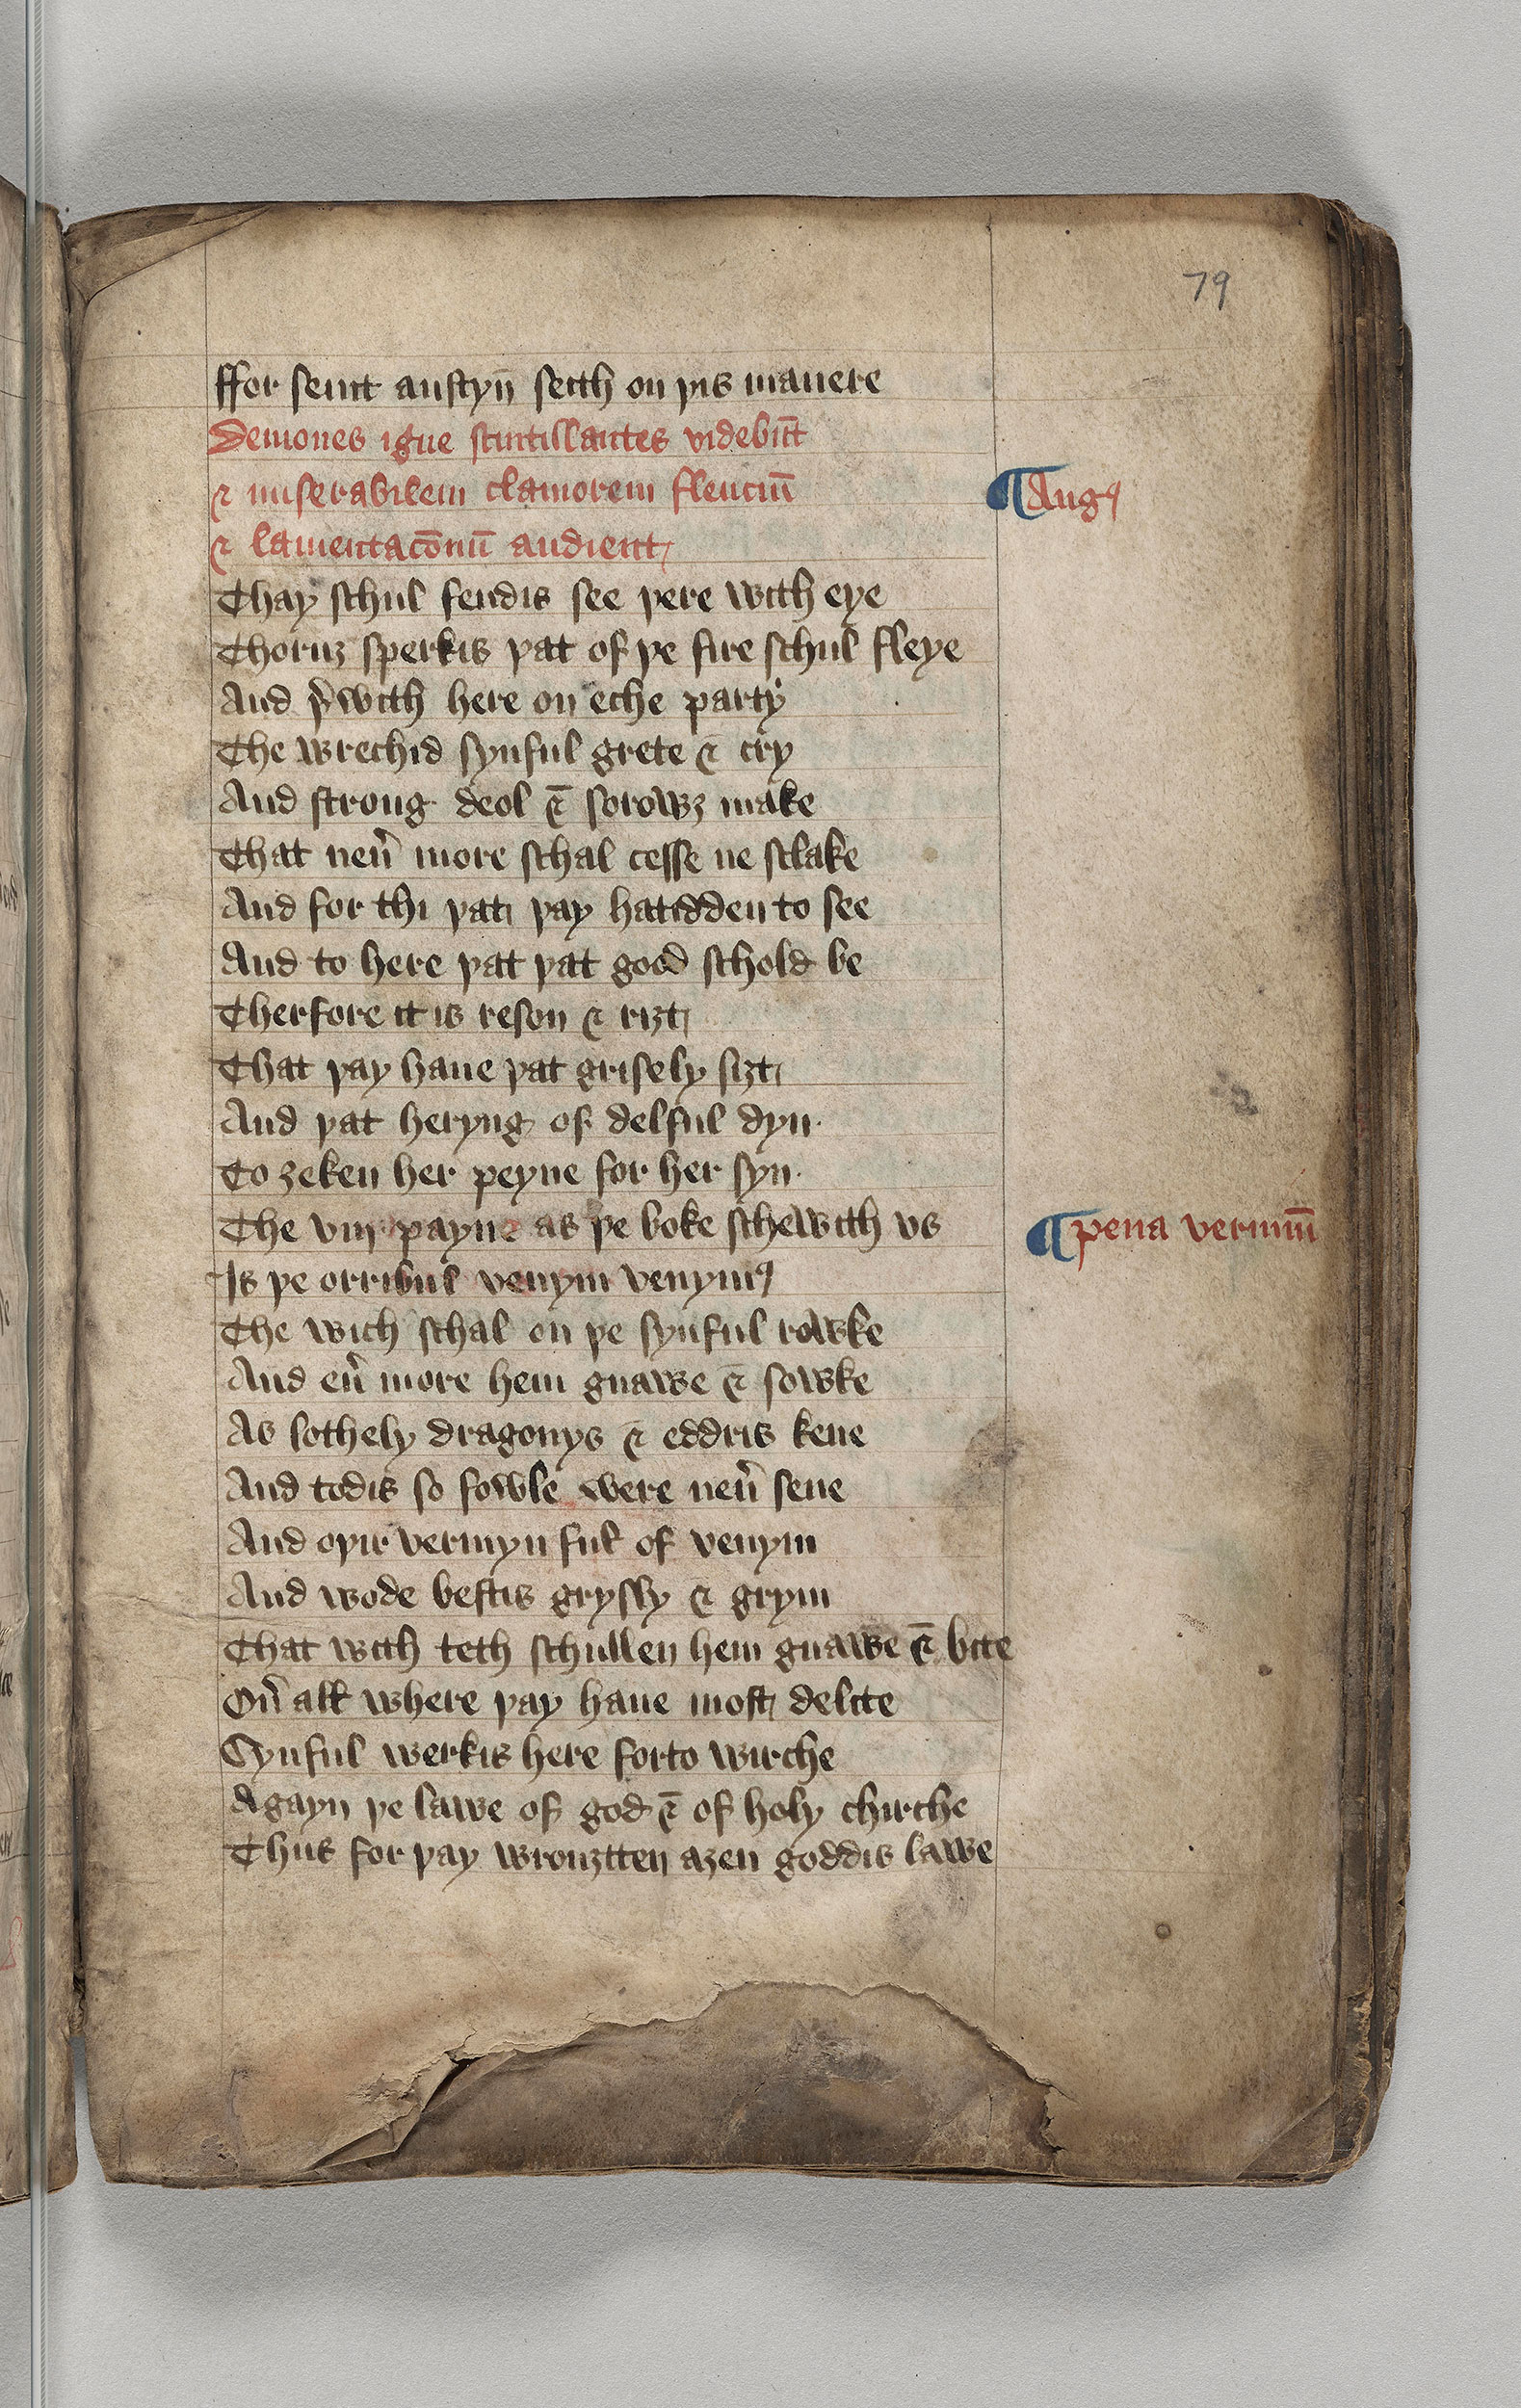 79
ffor seint austyn̄ seith on þis manere
Demones igne scintillantes videbūt
⁊ miserabilem clamorem flenciū
¶ Augꝰ
⁊ lamentacōnū audient
Thay schul fendis see þere with eye
Thoruȝ sperkis þat of þe fire schul fleye
And þ͛with here on eche party
The wrechid synful grete ⁊ cry
And strong deol ⁊ sorowȝ make
That neu͛ more schal cesse ne sclake
And for thi þat þay hatidden to see
And to here þat þat good schold be
Therfore it is reson ⁊ riȝt
That þay haue þat grisely siȝt
And þat heryng of delful dyn
To ȝeken her peyne for her syn
The viij payne as þe boke schewith vs
¶ pena vermiū
Is þe orribul venym venymꝰ
The wich schal on þe synful rowke
And eu͛ more hem gnawe ⁊ sowke
As lothely dragonys ⁊ eddris kene
And todis so fowle were neu͛ sene
And oþir vermyn ful of venym
And wode bestis grysly ⁊ grym
That with teth schullen hem gnawe ⁊ bite
Ou͛ all where þay haue most delite
Synful werkis here forto wirche
Agayn þe lawe of god ⁊ of holy chirche
Thus for þay wrouȝtten aȝen goddis lawe